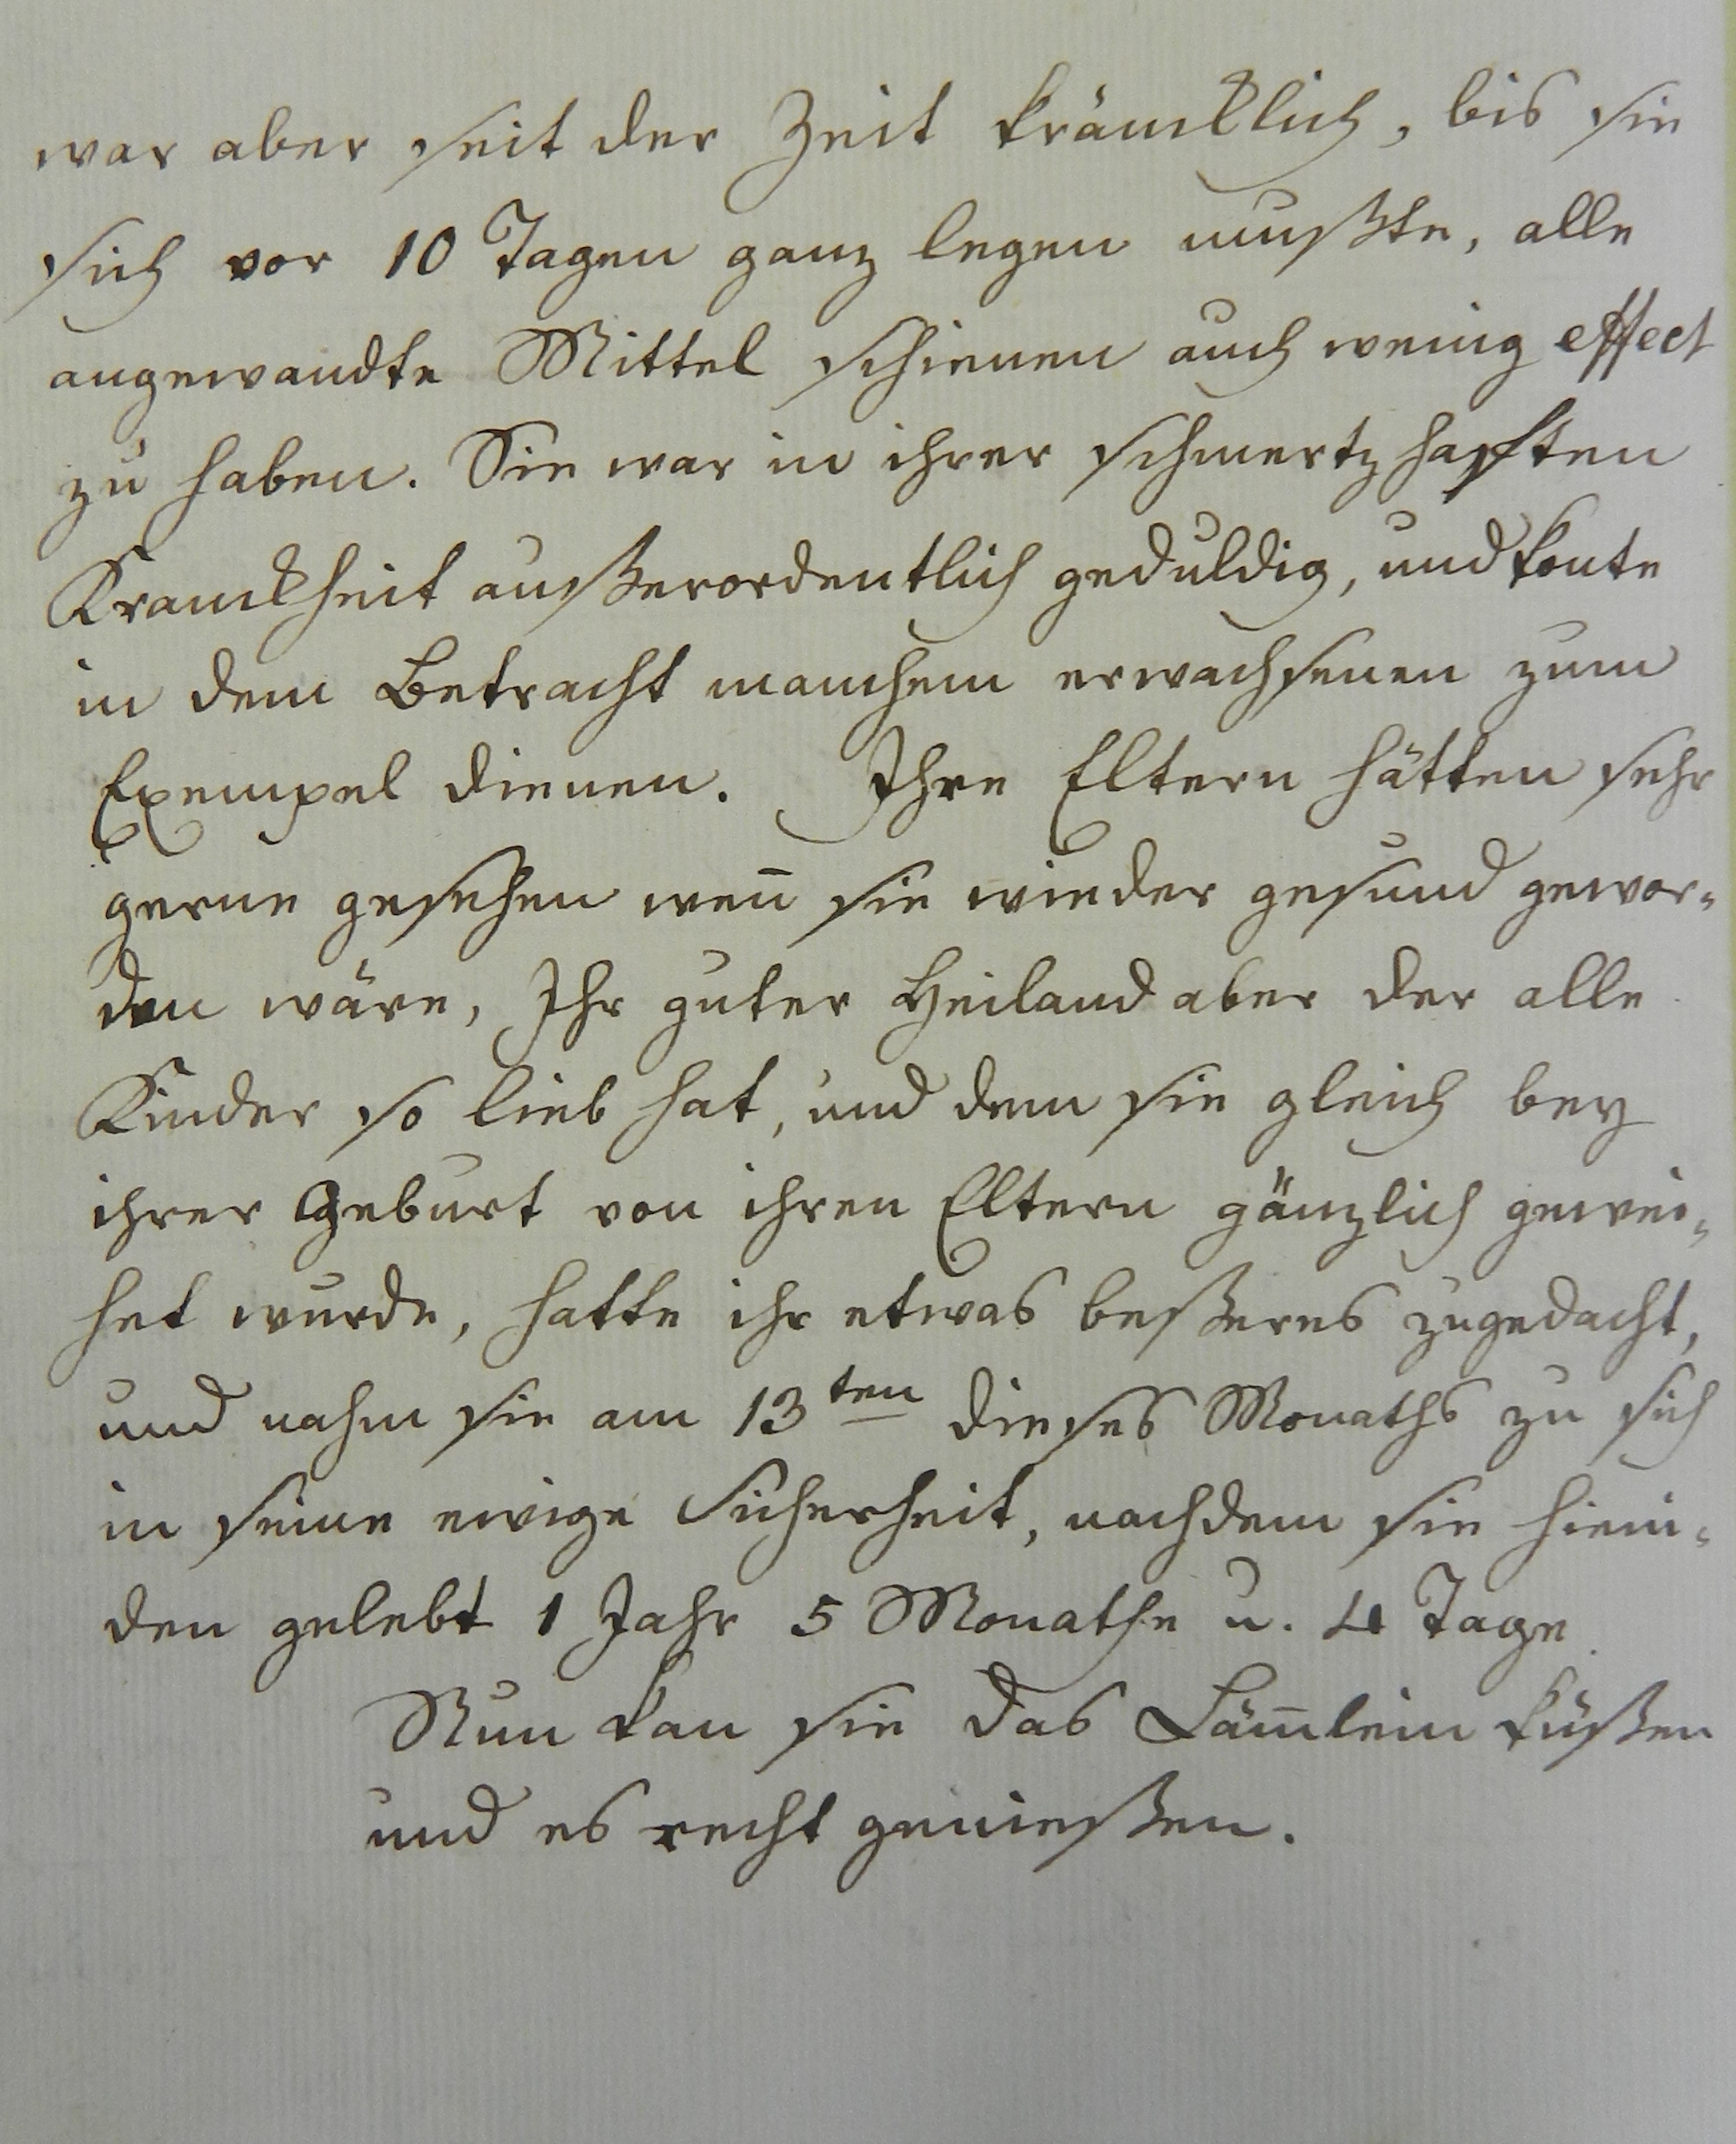 war aber seit der Zeit kräncklich, bis sie
sich vor 10 Tagen ganz legen mußte, alle
angewandte Mittel schienen auch wenig effect
zu haben. Sie war in ihrer schmertzhafften
Kranckheit außerordentlich geduldig, und konte
in dem Betracht manchem erwachsenen zum
Exempel dienen. Ihre Eltern hätten sehr
gerne gesehen wen̄ sie wieder gesund gewor-
den wäre, Ihr guter Heiland aber der alle
Kinder so lieb hat, und dem sie gleich bey
ihrer Geburt von ihren Eltern gänzlich gewei-
het wurde, hatte ihr etwas beßeres zugedacht,
und nahm sie am 13ten dieses Monaths zu sich
in seine ewige Sicherheit, nachdem sie hieni-
den gelebt 1 Jahr 5 Monathe u. 4 Tage.
Nun kan sie das Läm̄lein küßen
und es recht genießen.